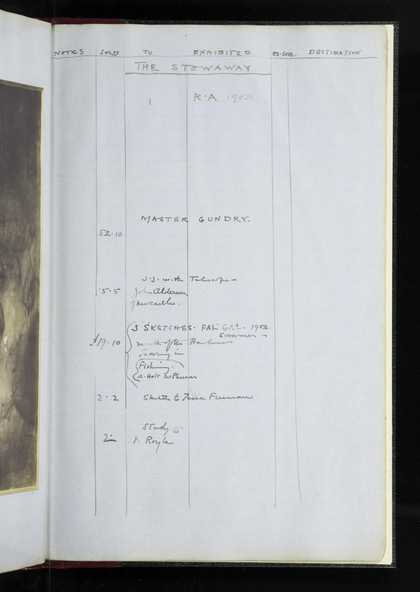 NOTES SOLD TO EXHIBITED RE-SOLD DESTINATION
THE STOWAWAY
1 R.A 1902
MASTER GUNDRY.
52.10
J.J. with Telescope
5.5 John Alderson
Newcastle.
3 SKETCHES. FAL 1902
Summer
£19.10 mouth of the Harbour
Towing in
Fishing.
2.2 Sketch to Freeman
Study
2 Royle